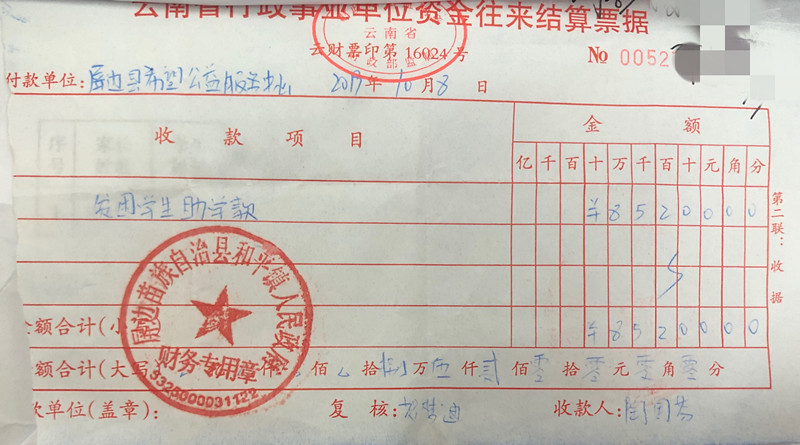 云南省行政事业单位资金往来结算票据
云南省
云财票印第 16024 号
No 0052
付款单位:屏边县希望公益服务中心 2017年10月8日
收款项目 金额
亿 千 百 十 万 千 百 十 元 角 分
贫困学生助学款 ¥8520000
第二联:收据
金额合计(小 ¥8520000
金额合计(大写 仟 佰 拾 捌万伍仟贰佰零拾零元零角零分
款单位(盖章): 复核: 收款人:
屏边苗族自治县和平镇人民政府
财务专用章
5325000031122